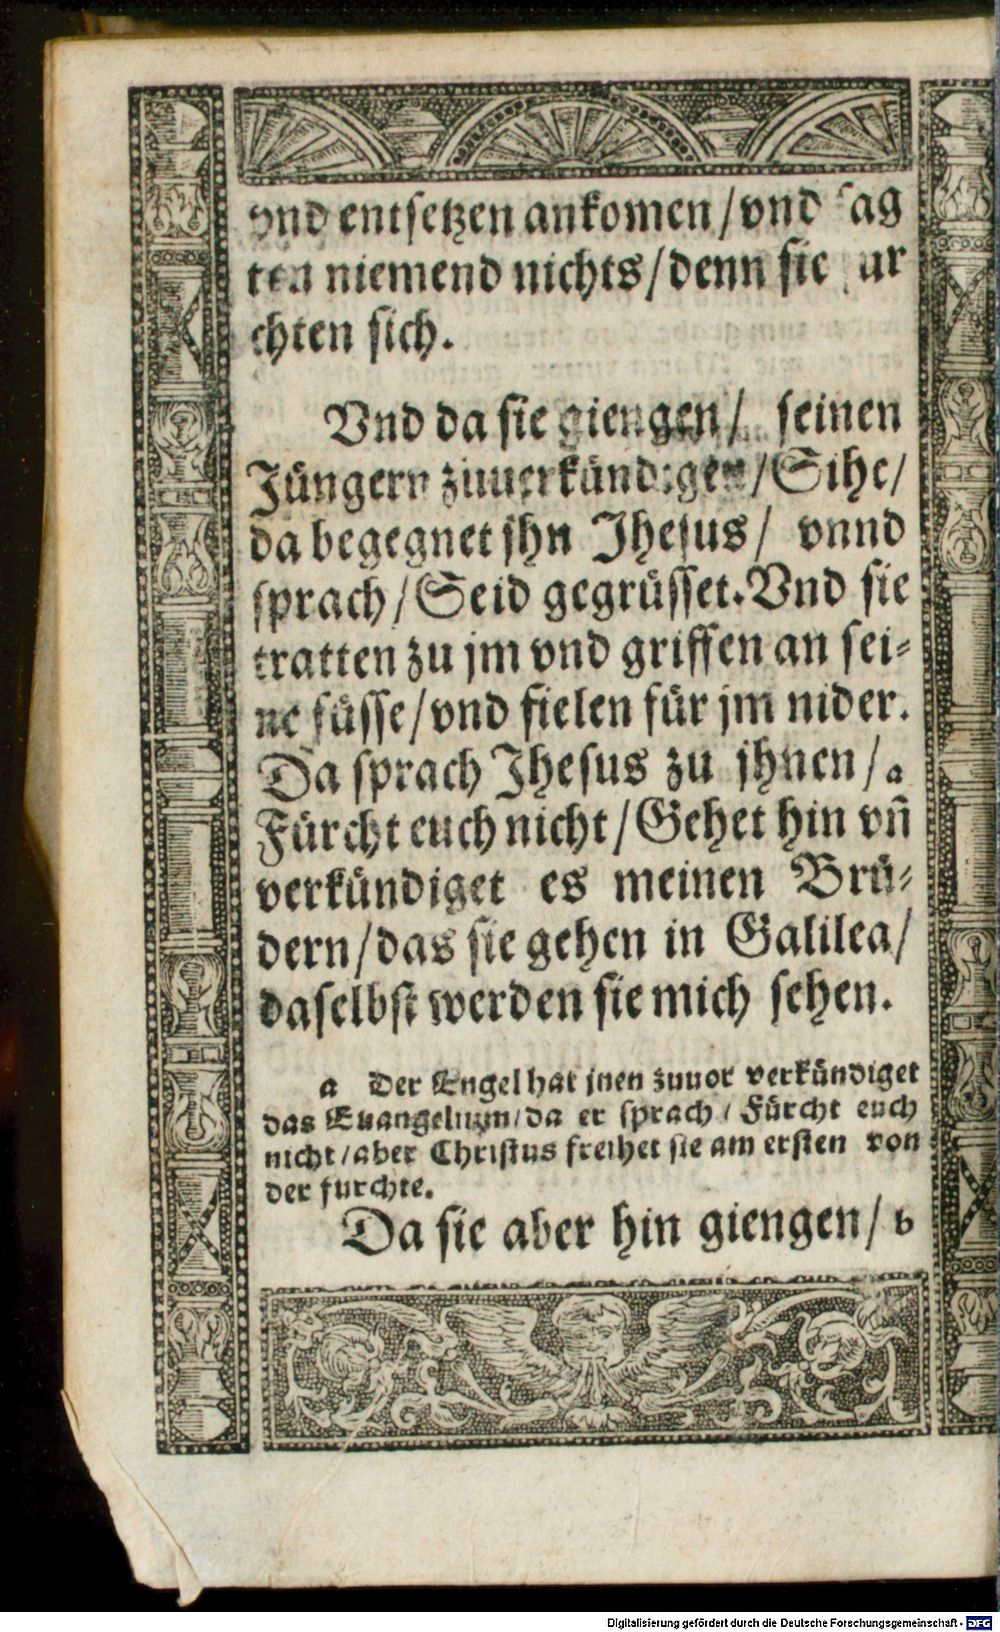 vnd entsetzen ankomen/vnd sag
ten niemend nichts/denn sie ur
chten sich.
Vnd da sie giengen/ seinen
Jüngern zuuerkündigen/Sihe/
da begegnet jhn Jhesus/ vnnd
sprach/Seid gegrüsset.Vnd sie
tratten zu jm vnd griffen an sei-
ne füsse/vnd fielen für jm nider.
Da sprach Jhesus zu jhnen/a
Fürcht euch nicht/Gehet hin vñ
verkündiget es meinen Brü-
dern/das sie gehen in Galilea/
daselbst werden sie mich sehen.
a Der Engel hat jnen zuuor verkündiget
das Euangelium/da er sprach/Fürcht euch
nicht/aber Christus freihet sie am ersten von
der furchte.
Da sie aber hin giengen/ b
Digitalisierung gefördert durch die Deutsche Forschungsgemeinschaft - DFG